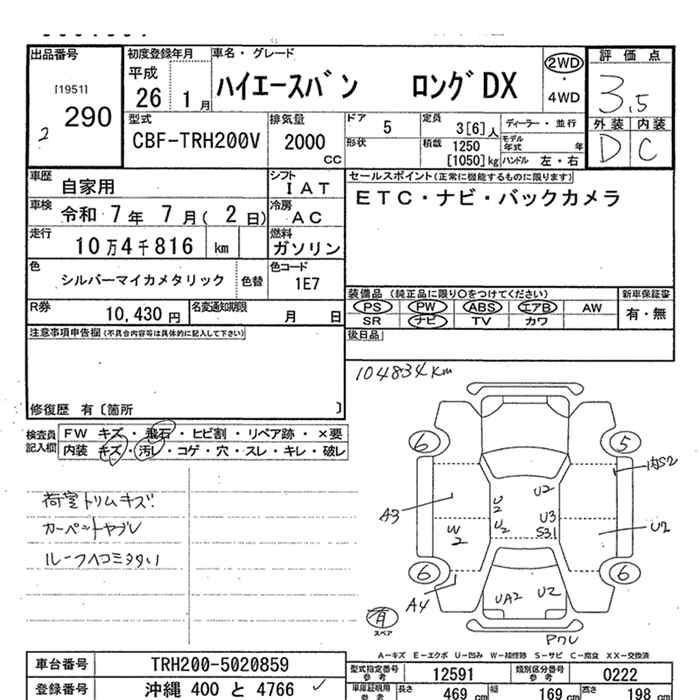 出品番号 初度登録年月 車名・グレード 評価点
[1951] 290 2
平成 26 1月 ハイエースバン ロングDX 2WD・4WD 3.5
外装 内装
D C
型式 排気量 ドア 5 定員 3[6]人 ディーラー・並行
CBF-TRH200V 2000 cc 形状 積載 1250 [1050]kg モデル年式 年 ハンドル 左・右
車歴 自家用 シフト IAT セールスポイント(正常に機能するものに限ります)
車検 令和 7年 7月(2日) 冷房 AC ETC・ナビ・バックカメラ
走行 10万4千816 km 燃料 ガソリン
色 シルバーマイカメタリック 色替 色コード 1E7
装備品 (純正品に限り○をつけてください) 新車保証書
R券 10,430円 名変通知期限 月 日 PS PW ABS エアB AW 有・無
SR ナビ TV カワ
注意事項申告欄(不具合内容等は具体的に記入して下さい) 後日品
104834km
修復歴 有〔箇所 〕
検査員記入欄 FW キズ・飛石・ヒビ割・リペア跡・×要
内装 キズ・汚レ・コゲ・穴・スレ・キレ・破レ
荷室トリムキズ!
カーペットヤブレ
6 5
A3 U2 U2 U2 U3 S31 U2
W2
6 6
A4 UA2 U2
有 スペア
A-キズ E-エクボ U-凹み W-補修跡 S-サビ C-腐食 XX-交換済
車台番号 TRH200-5020859 型式指定番号 参考 12591 類別区分番号 参考 0222
登録番号 沖縄 400 と 4766 長さ 469 cm 幅 169 cm 高さ 198 cm